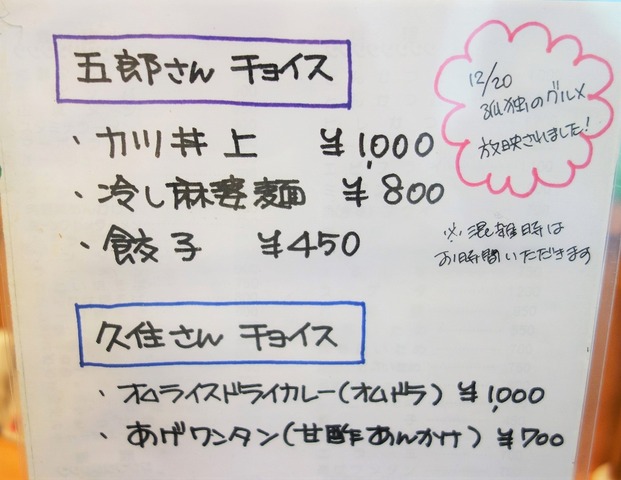 五郎さん チョイス
12/20
孤独のグルメ
放映されました!
・カツ丼上 ¥1,000
・冷し麻婆麺 ¥800
・餃子 ¥450
※混雑時は
お時間いただきます
久住さん チョイス
・オムライスドライカレー(オムドラ) ¥1,000
・あげワンタン(甘酢あんかけ) ¥700